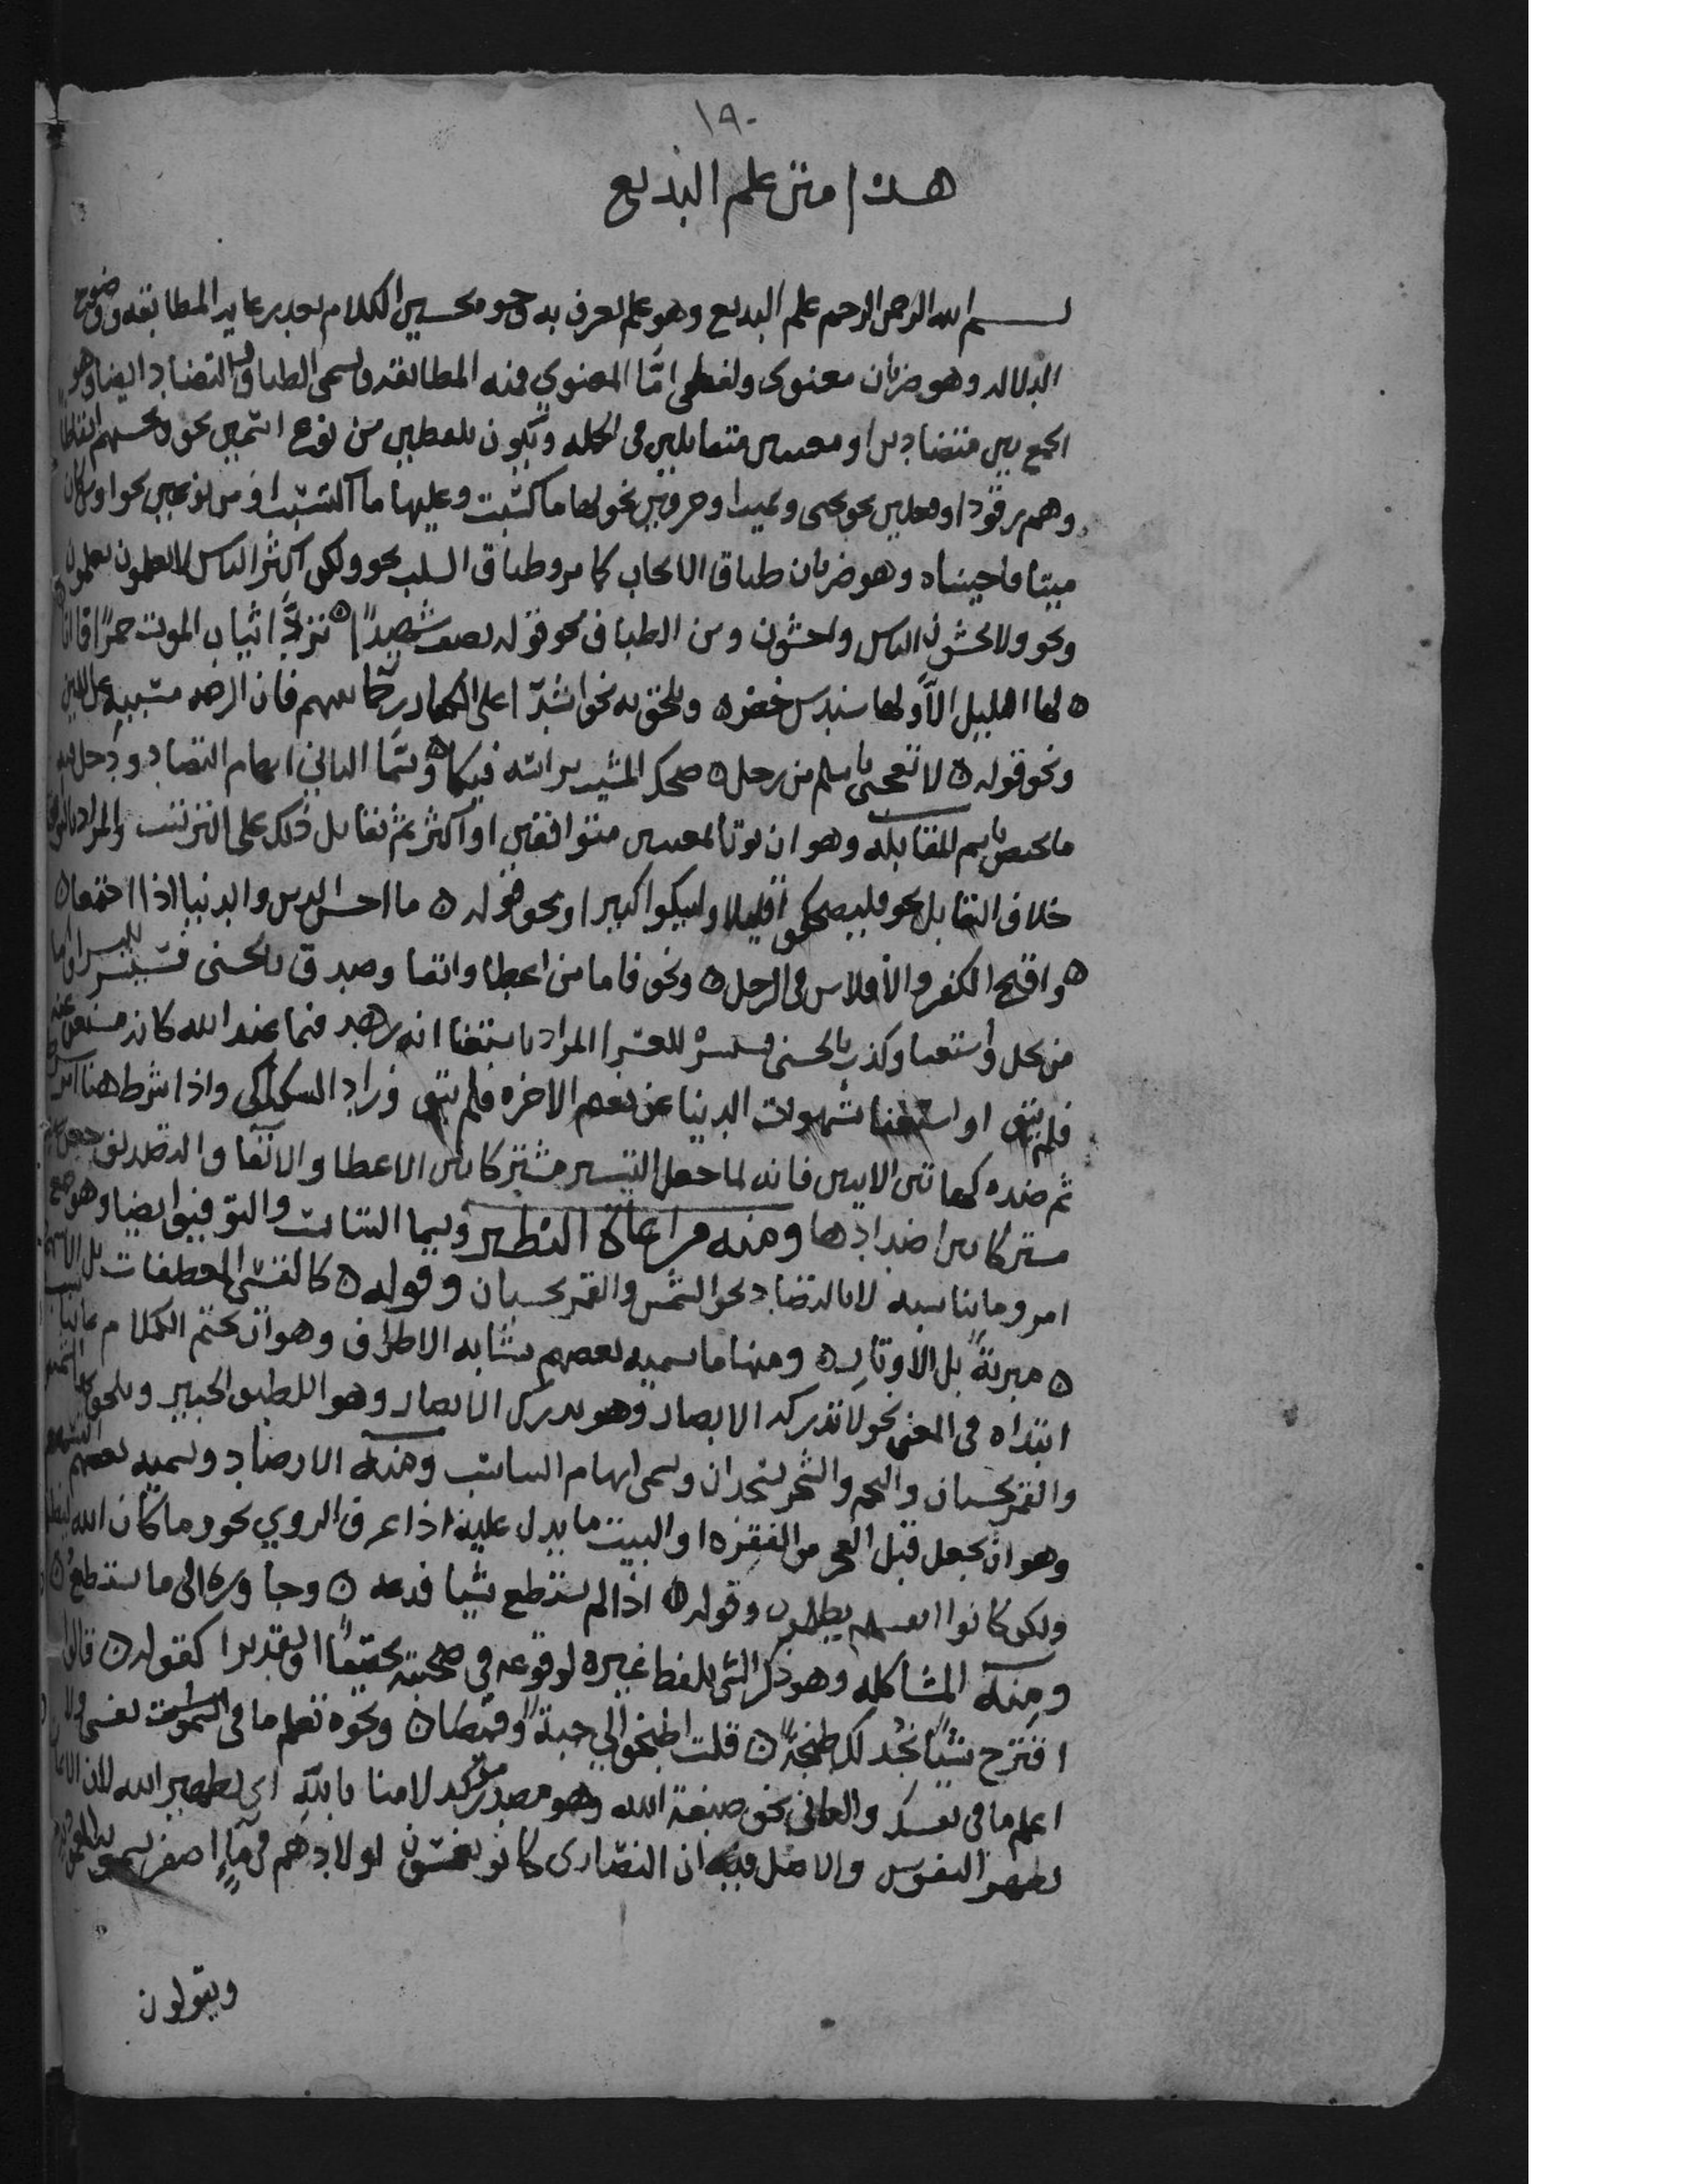 ١٩٠
هذا متن علم البديع
بسم الله الرحمن الرحيم علم البديع وهو علم يعرف به وجوه تحسين الكلام بعد رعاية المطابقه ووضوح
الدلاله وهو ضربان معنوى ولفظى امّا المعنوي فمنه المطابقه وتسمى الطباق والتضاد ايضا وهو
الجمع بين متضادين او معنيين متقابلين فى الجمله وتكون بلفظين من نوع اسمين نحو وتحسبهم ايقاظا
وهم رقود او فعلين نحو يحيى ويميت او حرفين نحو لها ما كسبت وعليها ما اكتسبت او من نوعين نحو اومن كان
ميتا فاحيناه وهو ضربان طباق الايجاب كما مر وطباق السلب نحو ولكن اكثر الناس لا يعلمون يعلمون
ونحو ولا تخشون الناس واخشون ومن الطباق نحو قوله يصف شهيدًا ه تردّا ثياب الموت حمرًا فما اتا
ه لها الليل الاّ ولها سندس خضره ويلحق به نحو اشدّا على الكفار رحما بينهم فان الرحمه مسببه عن اللين
ونحو قوله ه لا تعجبى يا سلم من رجل ه ضحك المشيب براسه فبكا ه وسمّا الثاني ايهام التضاد ودخل فيه
ما يختص باسم المقابله وهو ان يوتا بمعنيين متوافقين او اكثر ثم بمقابل ذلك على الترتيب والمراد بالتوافق
خلاف التقابل نحو فليضحكوا قليلا وليبكوا كثيرا ونحو قوله ه ما احسن الدين والدنيا اذا اجتمعا ه
ه واقبح الكفر والافلاس فى الرجل ه ونحو فاما من اعطا واتقا وصدق بالحسنى فسنيسره لليسرا واما
من بخل واستغنا وكذب بالحسنى فسنيسره للعسرا المراد باستغنا انه زهد فيما عند الله كانه مستغن عنه
فلم يتق او استغنا بشهوات الدنيا عن نعيم الاخره فلم يتق وزاد السكاكى واذا شرط هنا امر شرط
ثم ضده كهاتين الايتين فانه لما جعل التيسير مشتركا بين الاعطا والاتقا والتصديق جعل ضده
مشتركا بين اضدادها ومنه مراعاة النظير ويسما التناسب والتوفيق ايضا وهو جمع
امر وما يناسبه لا بالتضاد نحو الشمس والقمر بحسبان وقوله ه كالقسى المعطفات بل الاسهم
ه مبريةً بل الاوتار ه ومنها ما يسميه بعضهم تشابه الاطراف وهو ان يختم الكلام بما يناسب
ابتداه فى المعنى نحو لا تدركه الابصار وهو يدرك الابصار وهو اللطيف الخبير ويلحق بها نحو الشمس
والقمر بحسبان والنجم والشجر يسجدان ويسمى ايهام التناسب ومنه الارصاد ويسميه بعضهم التسهيم
وهو ان يجعل قبل العجز من الفقره او البيت ما يدل عليه اذا عرف الروي نحو وما كان الله ليظلمهم
ولكن كانوا انفسهم يظلمون وقوله ه اذا لم تستطع شيا فدعه ه وجاوزه الى ما تستطيع ه
ومنه المشاكله وهو ذكر الشى بلفظ غيره لوقوعه فى صحبته تحقيقًا او تقديرا كقوله ه قالوا
اقترح شيًا نجد لك طبخه ه قلت اطبخوا لي جبةً وقميصا ه ونحوه تعلم ما فى نفسى ولا
اعلم ما فى نفسك والثانى نحو صبغة الله وهو مصدر موكد لامنا بالله اى تطهير الله لان الايمان
يطهر النفوس والاصل فيه ان النصارى كانو يغمسون اولادهم فى ماءٍ اصفر يسمونه المعموديه
ويقولون